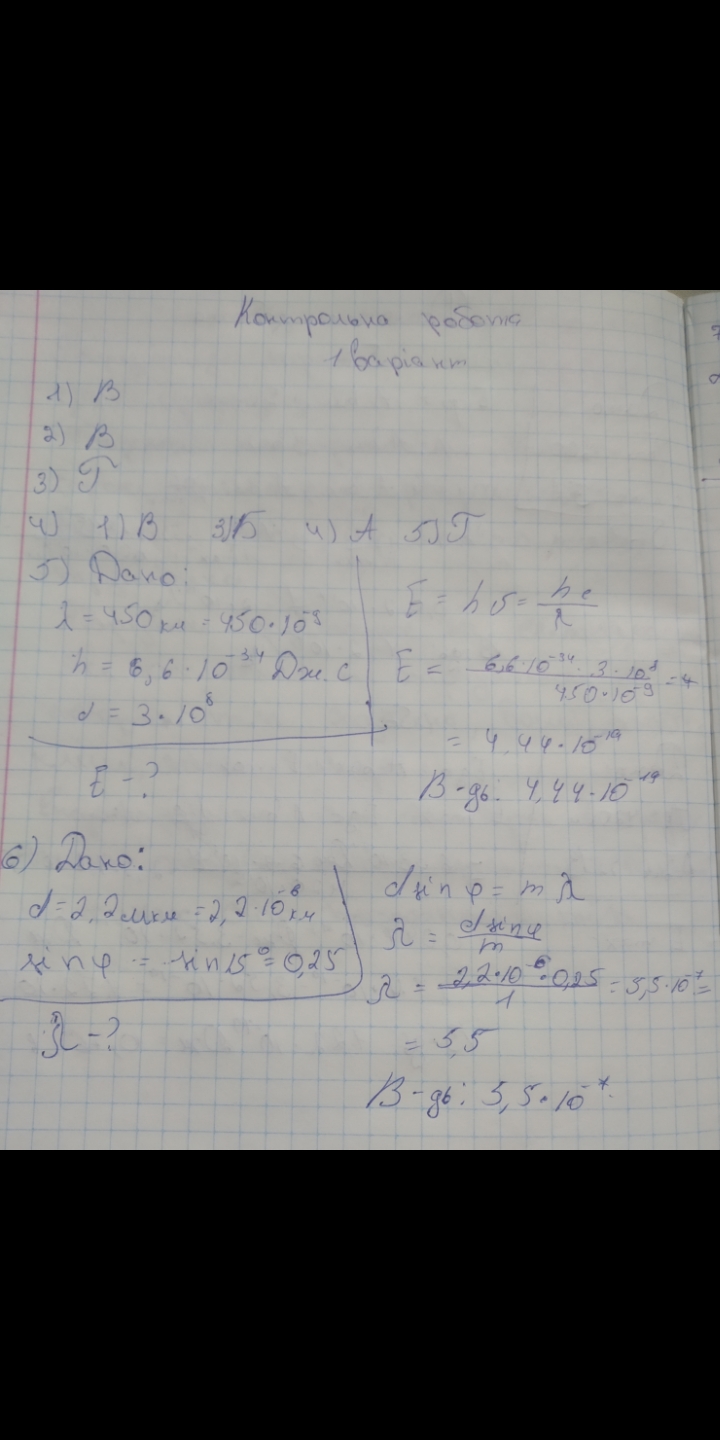 Контрольна робота
1 варіант
1) В
2) В
3) Г
4) 1) В 3) Б 4) А 5) Г
5) Дано:
λ = 450 нм = 450·10⁻⁹
h = 6,6·10⁻³⁴ Дж·с
с = 3·10⁸
E - ?
E = hυ = hc/λ
E = 6,6·10⁻³⁴·3·10⁸/450·10⁻⁹ =
= 4,44·10⁻¹⁹
В-дь: 4,44·10⁻¹⁹
6) Дано:
d = 2,2 мкм = 2,2·10⁻⁶ м
sin φ = sin 15° = 0,25
λ - ?
d sin φ = m λ
λ = d sin φ/m
λ = 2,2·10⁻⁶·0,25/1 = 5,5·10⁻⁷ =
= 5,5
В-дь: 5,5·10⁻⁷